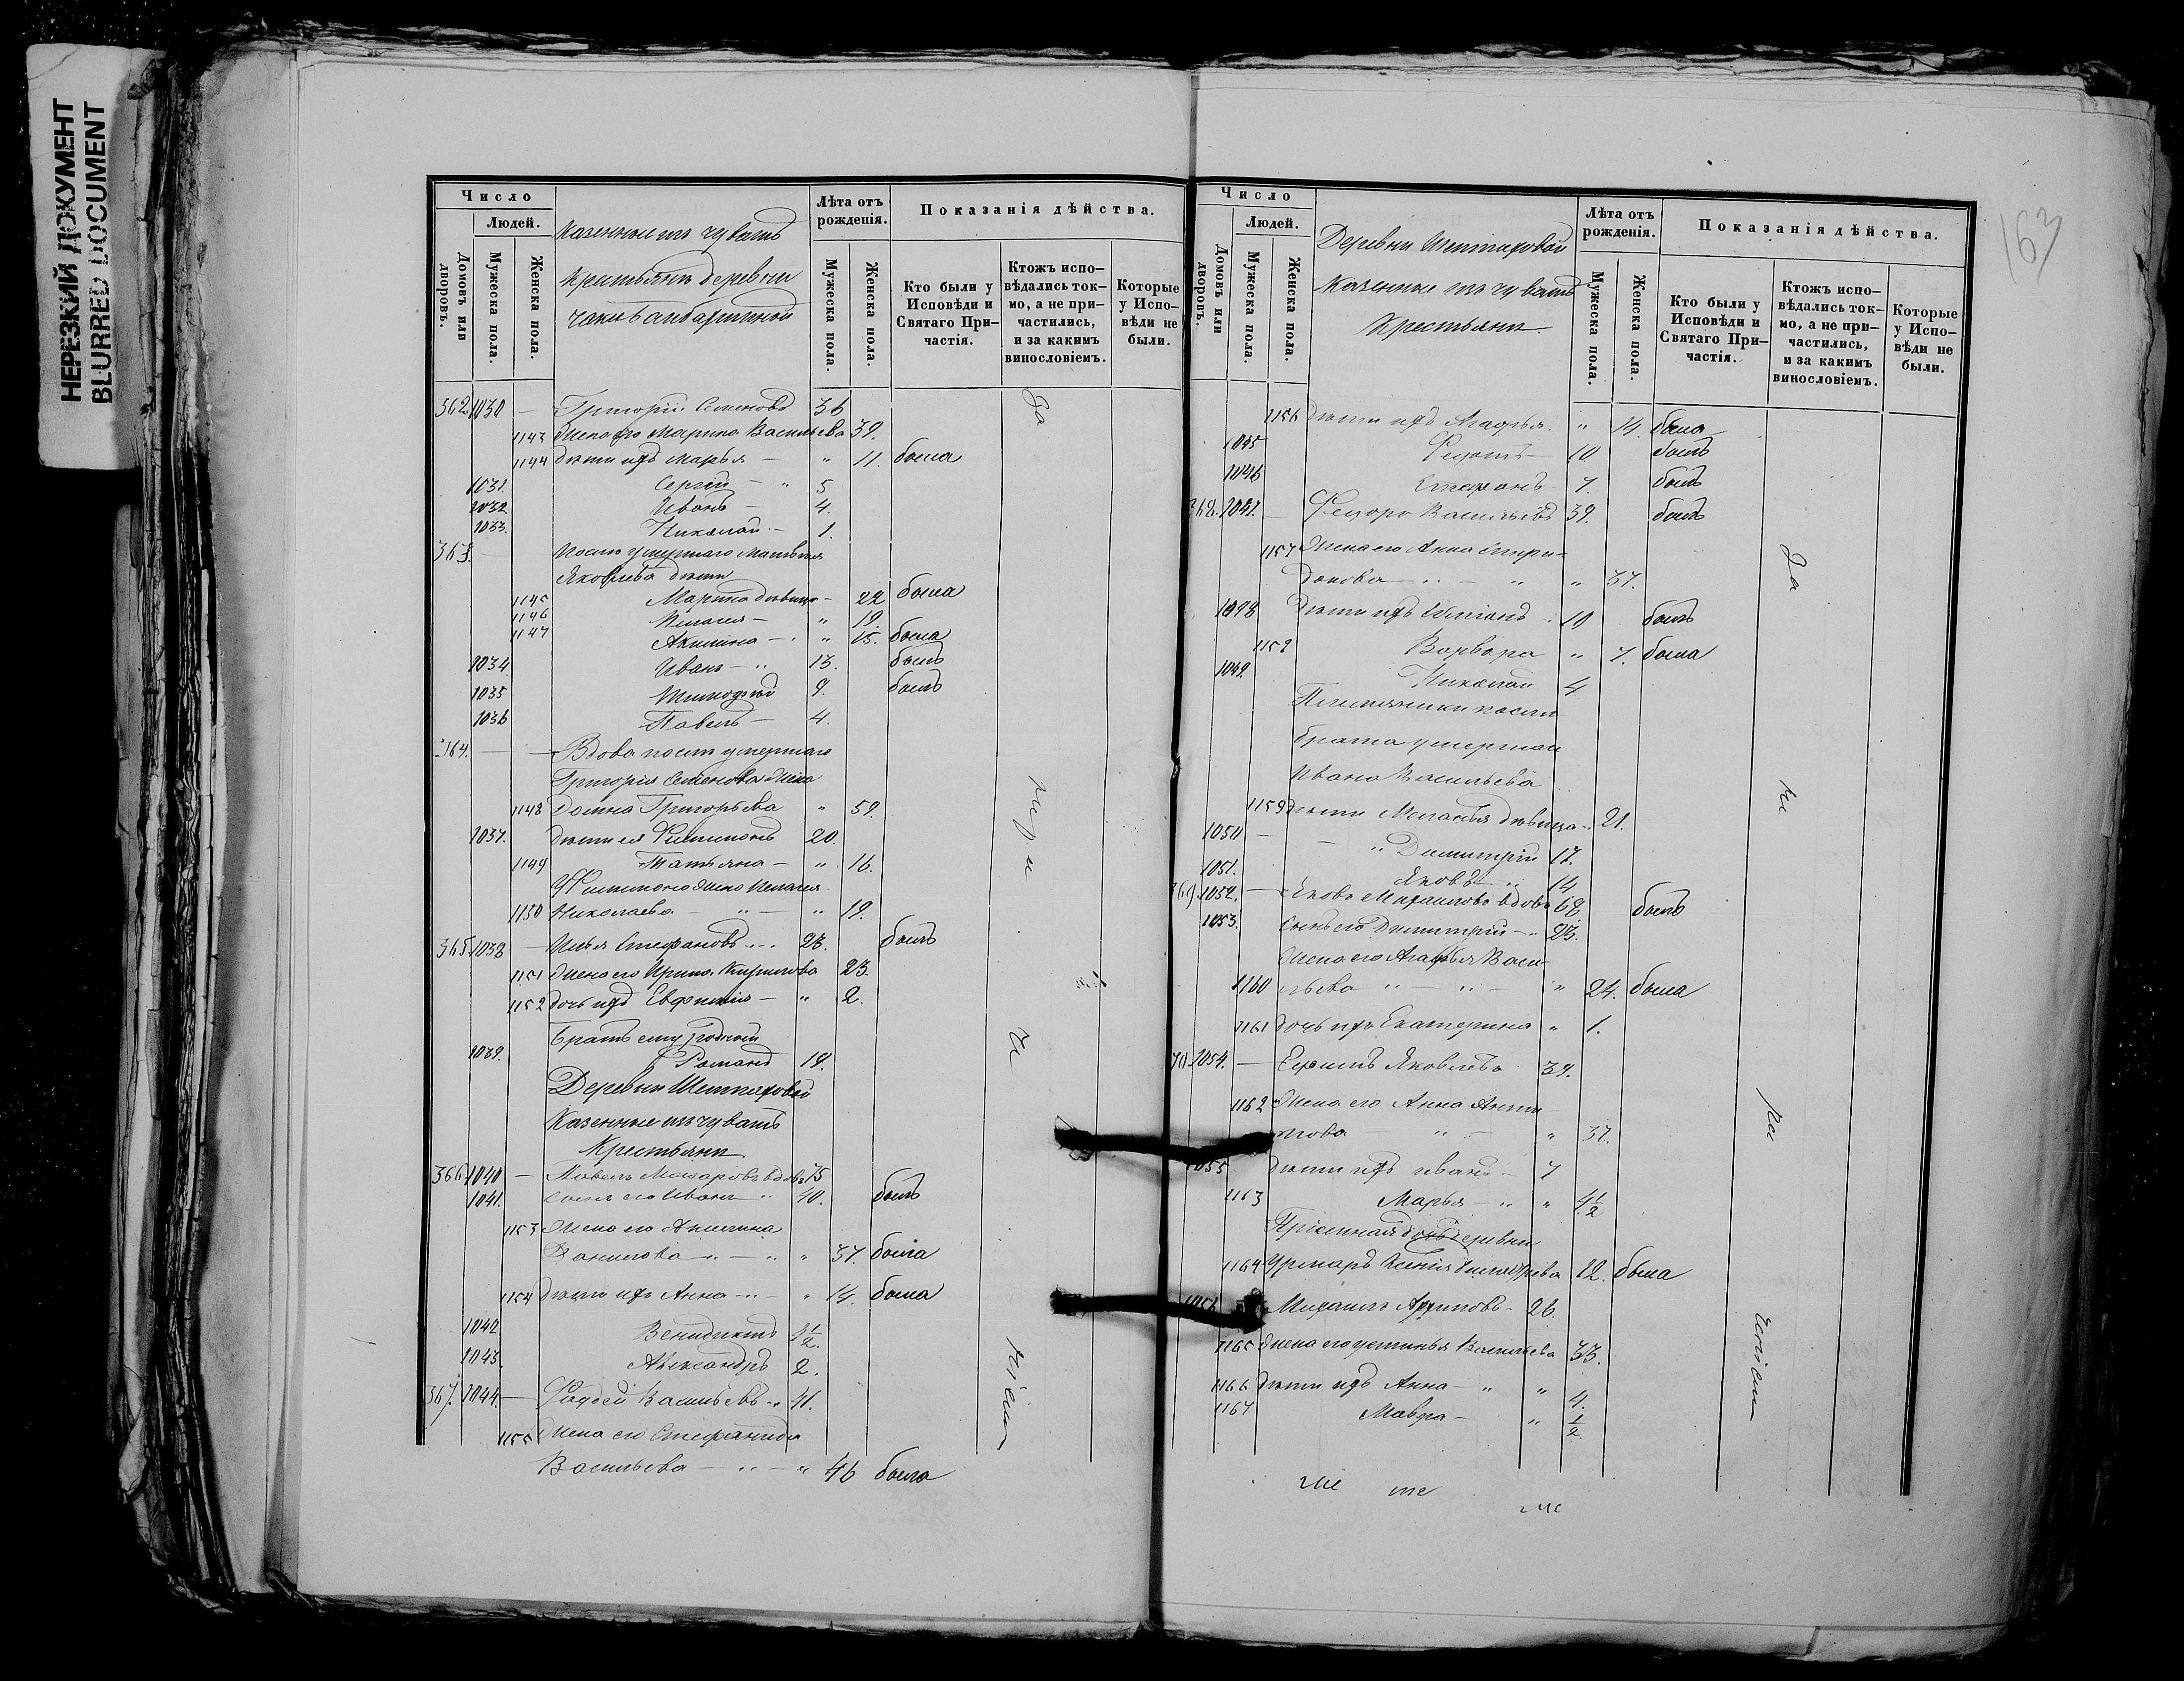 НЕРЕЗКИЙ ДОКУМЕНТ
BLURRED DOCUMENT
Число
Людей.
Домовъ или дворовъ.
Мужеска пола.
Женска пола.
Казенные изъ чувашъ
Крестьянъ деревни
Лѣта отъ рожденія.
Мужеска пола.
Женска пола.
Показанія дѣйства.
Кто были у Исповѣди и Святаго Причастія.
Ктожъ исповѣдались токмо, а не причастились, и за какимъ винословіемъ.
Которые у Исповѣди не были.
362 1030 — Григорій Семеновъ 36
1143 Жена его Марина Васильева 39.
1144 дѣти ихъ Марья — " 11. была
1031. Сергій — " 5
1032. Иванъ — 4.
1033. Николай — 1.
363. — Послѣ умершаго Матвѣя
Яковлева дѣти
1145 Марина дѣвица — 22 была
1146 Пелагея — " 19.
1147 Акилина — " 15. была
1034 Иванъ — " 13. былъ
1035 Тимофей 9. былъ
1036 Павелъ — 4.
364. — — Вдова послѣ умершаго
Григорія Семенова жена
1148 Домна Григорьева " 59.
1037. дѣти ея Филимонъ 20.
1149 Татьяна — " 16.
Филимона жена Пелагея
1150 Николаева — " — " 19.
365 1038 — Илья Стефановъ 23. былъ
1151 Жена его Ирина Кирилова 23.
1152 дочь ихъ Евфимия — " 2.
Братъ ему родной
1039. Романъ 19.
Деревни Шептаховой
Казенные изъ чувашъ
Крестьяне
366. 1040 — Павелъ Макаровъ вдовъ 75
1041. Сынъ его Иванъ " 40. былъ
1153 Жена его Акилина
Данилова " — " " 37. была
1154 дѣти ихъ Анна — " 14. была
1042 Венидиктъ 4½.
1043 Александръ 2.
367. 1044. — Фаддей Васильевъ 41.
1155 Жена его Стефанида
Васильева — " — " 46 была
За
ні
емъ
163
Число
Людей.
Домовъ или дворовъ.
Мужеска пола.
Женска пола.
Деревни Шептаховой
Казенные изъ чувашъ
Крестьяне
Лѣта отъ рожденія.
Мужеска пола.
Женска пола.
Показанія дѣйства.
Кто были у Исповѣди и Святаго Причастія.
Ктожъ исповѣдались токмо, а не причастились, и за какимъ винословіемъ.
Которые у Исповѣди не были.
1156 дѣти ихъ Агафья " 14. была
1045 Федотъ — 10 былъ
1046 Стефанъ 7. былъ
368. 1047. — Федоръ Васильевъ 39. былъ
1157 Жена его Анна Спири-
донова — " — " " 37.
1048 дѣти ихъ 10 былъ
1158 Варвара " 7. была
1049. Николай 4
Племянники послѣ
брата умершаго
Ивана Васильева
1159 дѣти Меланья дѣвица 21.
1050 — — " Димитрій 17.
1051. Яковъ " 14
369 1052. — Яковъ Михайловъ вдовъ 68. былъ
1053. Сынъ его Димитрій — 23.
Жена его Агафья Васи-
1160 льева " — " — " 24. была
1161 дочь ихъ Екатерина " 1.
370 1054. — Ефимъ Яковлевъ 39.
1162 Жена его Анна
" — " 37.
1055 дѣти ихъ Иванъ — 7
1163 Марья — " " 4½
Пріемная дочь деревни
1164 Урмаръ Ксенія 12. была
1056 Михаилъ Архиповъ — 26.
1165 Жена его Устинья Васильева 33.
1166 дѣти ихъ Анна — " " 4.
1167 Мавра — " ½
За
не
ра
ніемъ